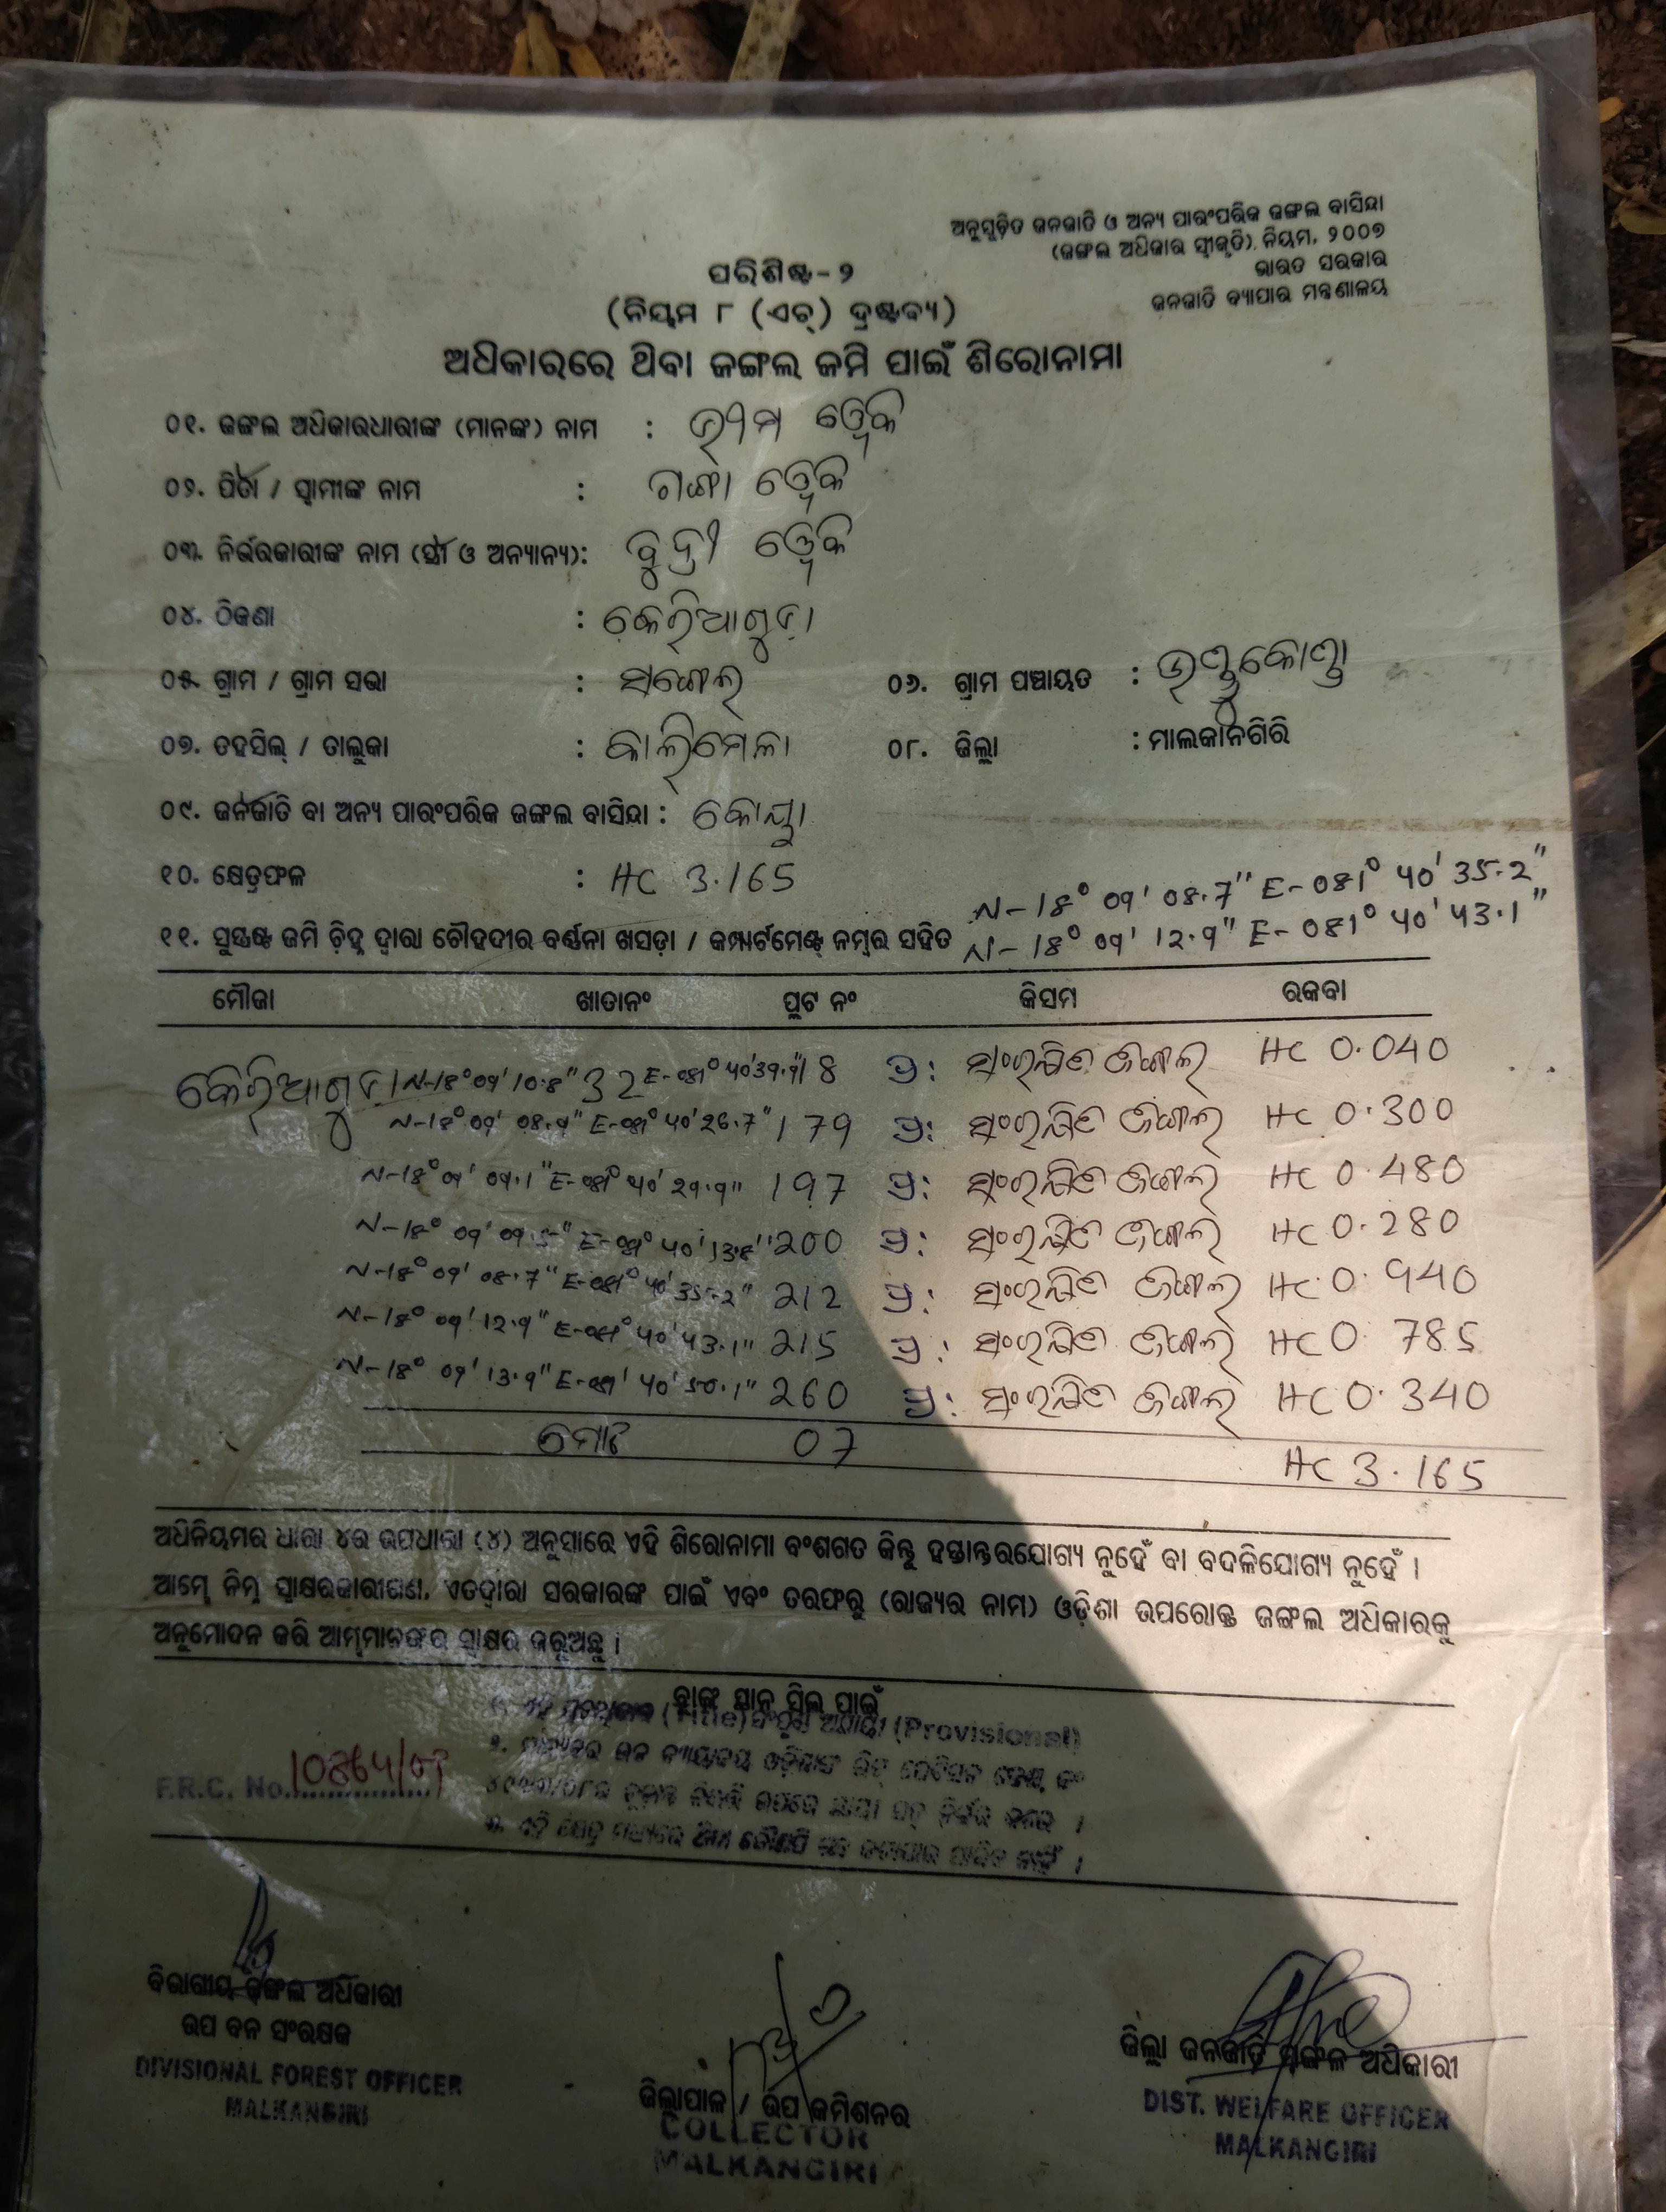 ଅନୁସୂଚିତ ଜନଜାତି ଓ ଅନ୍ୟ ପାରଂପରିକ ଜଙ୍ଗଲ ବାସିନ୍ଦା
(ଜଙ୍ଗଲ ଅଧିକାର ସ୍ୱୀକୃତି) ନିୟମ, ୨୦୦୭
ଭାରତ ସରକାର
ଜନଜାତି ବ୍ୟାପାର ମନ୍ତ୍ରଣାଳୟ
ପରିଶିଷ୍ଟ-୨
(ନିୟମ ୮ (ଏଚ୍) ଦ୍ରଷ୍ଟବ୍ୟ)
ଅଧିକାରରେ ଥିବା ଜଙ୍ଗଲ ଜମି ପାଇଁ ଶିରୋନାମା
୦୧. ଜଙ୍ଗଲ ଅଧିକାରଧାରୀଙ୍କ (ମାନଙ୍କ) ନାମ : ଭୀମ ୱେକି
୦୨. ପିତା / ସ୍ୱାମୀଙ୍କ ନାମ : ଗଙ୍ଗା ୱେକି
୦୩. ନିର୍ଭରକାରୀଙ୍କ ନାମ (ସ୍ତ୍ରୀ ଓ ଅନ୍ୟାନ୍ୟ): ବୁଦ୍ରୀ ୱେକି
୦୪. ଠିକଣା : କେରିଆଗୁଡ଼ା
୦୫. ଗ୍ରାମ / ଗ୍ରାମ ସଭା : ସଙ୍ଗେଲ୍ ୦୬. ଗ୍ରାମ ପଞ୍ଚାୟତ : ଭଣ୍ଡୁକୋଣ୍ଡା
୦୭. ତହସିଲ୍ / ତାଲୁକା : କାଲିମେଳା ୦୮. ଜିଲ୍ଲା : ମାଲକାନଗିରି
୦୯. ଜନଜାତି ବା ଅନ୍ୟ ପାରଂପରିକ ଜଙ୍ଗଲ ବାସିନ୍ଦା : କୋୟା
୧୦. କ୍ଷେତ୍ରଫଳ : HC 3.165
N-18° 09' 08.7" E-081° 40' 35.2"
୧୧. ସୁସ୍ପଷ୍ଟ ଜମି ଚିହ୍ନ ଦ୍ୱାରା ଚୌହଦୀର ବର୍ଣ୍ଣନା ଖସଡ଼ା / କମ୍ପାର୍ଟମେଣ୍ଟ ନମ୍ବର ସହିତ N-18° 09' 12.9" E-081° 40' 43.1"
ମୌଜା ଖାତାନଂ ପ୍ଲଟ ନଂ କିସମ ରକବା
କେରିଆଗୁଡ଼ା N-18° 09' 10.8" 32 E-081° 40' 39.9" 18 ପ୍ର: ସଂରକ୍ଷିତ ଜଙ୍ଗଲ HC 0.040
N-18° 09' 08.9" E-081° 40' 26.7" 179 ପ୍ର: ସଂରକ୍ଷିତ ଜଙ୍ଗଲ HC 0.300
N-18° 09' 09.1" E-081° 40' 29.9" 197 ପ୍ର: ସଂରକ୍ଷିତ ଜଙ୍ଗଲ HC 0.480
N-18° 09' 09.5" E-081° 40' 13.8" 200 ପ୍ର: ସଂରକ୍ଷିତ ଜଙ୍ଗଲ HC 0.280
N-18° 09' 08.7" E-081° 40' 35.2" 212 ପ୍ର: ସଂରକ୍ଷିତ ଜଙ୍ଗଲ HC 0.940
N-18° 09' 12.9" E-081° 40' 43.1" 215 ପ୍ର: ସଂରକ୍ଷିତ ଜଙ୍ଗଲ HC 0.785
N-18° 09' 13.9" E-081' 40' 50.1" 260 ପ୍ର: ସଂରକ୍ଷିତ ଜଙ୍ଗଲ HC 0.340
ମୋଟ 07 HC 3.165
ଅଧିନିୟମର ଧାରା ୪ର ଉପଧାରା (୪) ଅନୁସାରେ ଏହି ଶିରୋନାମା ବଂଶଗତ କିନ୍ତୁ ହସ୍ତାନ୍ତରଯୋଗ୍ୟ ନୁହେଁ ବା ବଦଳିଯୋଗ୍ୟ ନୁହେଁ ।
ଆମ୍ଭେ ନିମ୍ନ ସ୍ୱାକ୍ଷରକାରୀଗଣ, ଏତଦ୍ୱାରା ସରକାରଙ୍କ ପାଇଁ ଏବଂ ତରଫରୁ (ରାଜ୍ୟର ନାମ) ଓଡ଼ିଶା ଉପରୋକ୍ତ ଜଙ୍ଗଲ ଅଧିକାରକୁ
ଅନୁମୋଦନ କରି ଆମ୍ଭମାନଙ୍କର ସ୍ୱାକ୍ଷର କରୁଅଛୁ ।
(Title) (Provisional)
F.R.C. No. 10864/09
ବିଭାଗୀୟ ଜଙ୍ଗଲ ଅଧିକାରୀ
ଉପ ବନ ସଂରକ୍ଷକ
DIVISIONAL FOREST OFFICER
MALKANGIRI
ଜିଲ୍ଲାପାଳ / ଉପ କମିଶନର
COLLECTOR
MALKANGIRI
ଜିଲ୍ଲା ଜନଜାତି ମଙ୍ଗଳ ଅଧିକାରୀ
DIST. WELFARE OFFICER
MALKANGIRI